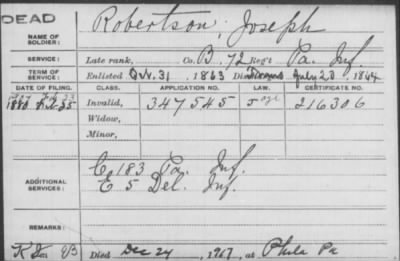 DEAD
NAME OF SOLDIER: Robertson, Joseph
SERVICE: Late rank, Co. B, 72 Reg't Pa. Inf.
TERM OF SERVICE: Enlisted 31, 1863 July 20, 1864
DATE OF FILING. CLASS. APPLICATION NO. LAW. CERTIFICATE NO.
1880 Invalid, 347545 216306
Widow,
Minor,
ADDITIONAL SERVICES: Co 183 Pa. Inf.
E 5 Del. Inf.
REMARKS:
Died Dec 24, 1907, at Phila Pa